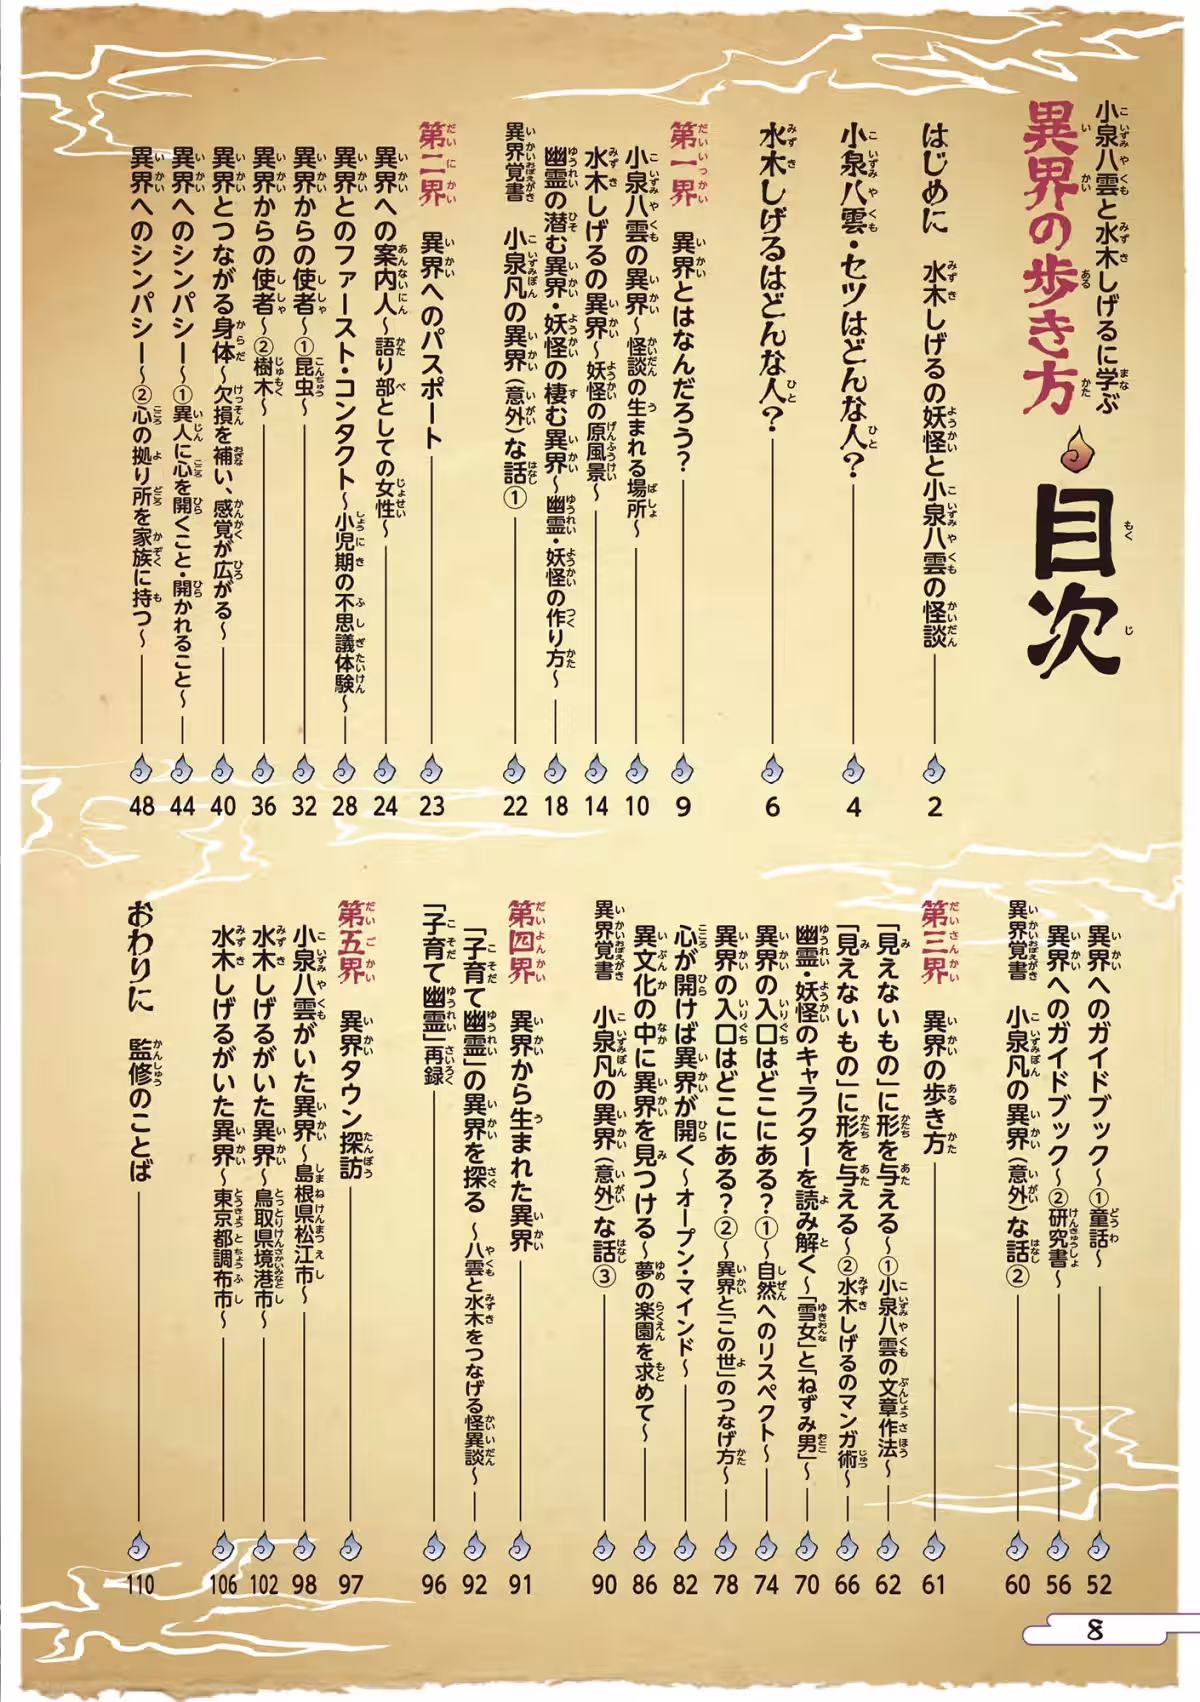 小泉八雲と水木しげるに学ぶ
異界の歩き方
目次
はじめに 水木しげるの妖怪と小泉八雲の怪談 2
小泉八雲・セツはどんな人? 4
水木しげるはどんな人? 6
第一界 異界とはなんだろう? 9
小泉八雲の異界~怪談の生まれる場所~ 10
水木しげるの異界~妖怪の原風景~ 14
幽霊の潜む異界・妖怪の棲む異界~幽霊・妖怪の作り方~ 18
異界覚書 小泉凡の異界(意外)な話① 22
第二界 異界へのパスポート 23
異界への案内人~語り部としての女性~ 24
異界とのファースト・コンタクト~小児期の不思議体験~ 28
異界からの使者~①昆虫~ 32
異界からの使者~②樹木~ 36
異界とつながる身体~欠損を補い、感覚が広がる~ 40
異界へのシンパシー~①異人に心を開くこと・開かれること~ 44
異界へのシンパシー~②心の拠り所を家族に持つ~ 48
異界へのガイドブック~①童話~ 52
異界へのガイドブック~②研究書~ 56
異界覚書 小泉凡の異界(意外)な話② 60
第三界 異界の歩き方 61
「見えないもの」に形を与える~①小泉八雲の文章作法~ 62
「見えないもの」に形を与える~②水木しげるのマンガ術~ 66
幽霊・妖怪のキャラクターを読み解く~「雪女」と「ねずみ男」~ 70
異界の入口はどこにある?①~自然へのリスペクト~ 74
異界の入口はどこにある?②~異界と「この世」のつなげ方~ 78
心が開けば異界が開く~オープン・マインド~ 82
異文化の中に異界を見つける~夢の楽園を求めて~ 86
異界覚書 小泉凡の異界(意外)な話③ 90
第四界 異界から生まれた異界 91
「子育て幽霊」の異界を探る ~八雲と水木をつなげる怪異談~ 92
「子育て幽霊」再録 96
第五界 異界タウン探訪 97
小泉八雲がいた異界~島根県松江市~ 98
水木しげるがいた異界~鳥取県境港市~ 102
水木しげるがいた異界~東京都調布市~ 106
おわりに 監修のことば 110
8